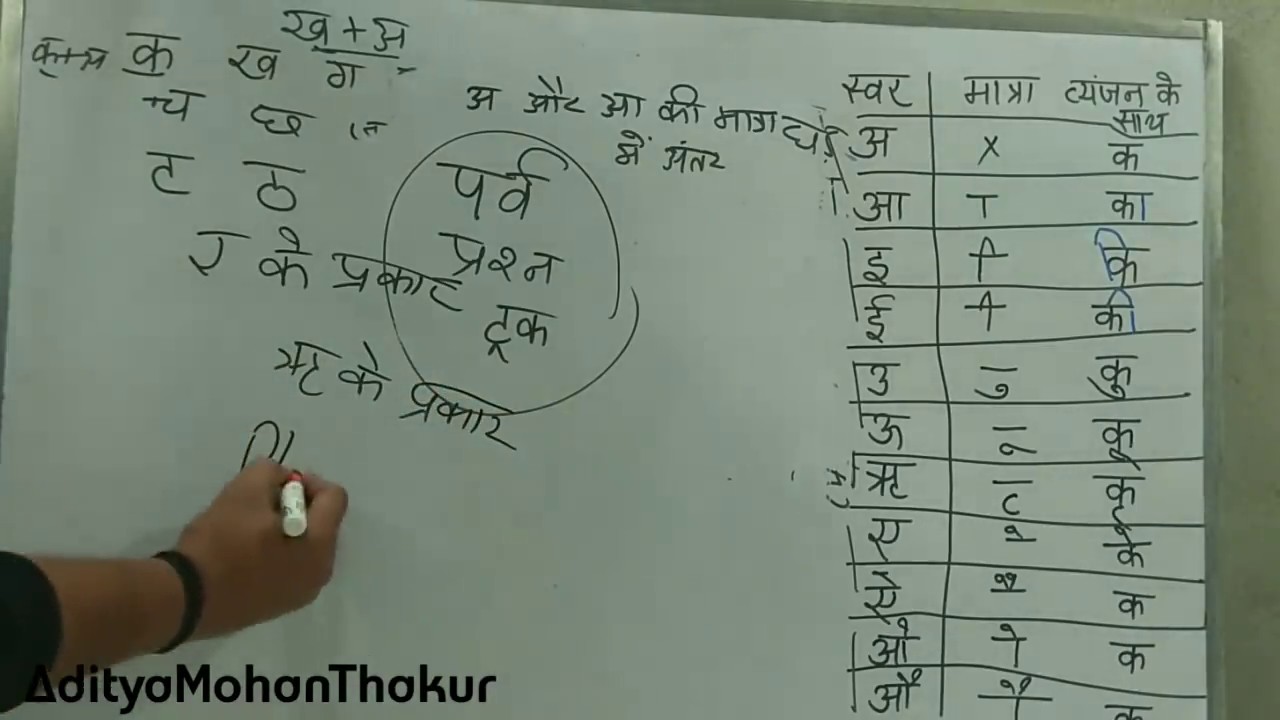 ख् + अ
क् + अ क ख ग
च छ
ट ठ
र के प्रकार
ऋ के प्रकार
अ और आ की मात्रा
में अंतर
पर्व
प्रश्न
ट्रक
स्वर मात्रा व्यंजन के साथ
अ × क
आ ा का
इ ि कि
ई ी की
उ ु कु
ऊ ू कू
ऋ ृ कृ
ए े के
ऐ ै क
ओ ो क
औ ौ क
AdityaMohanThakur